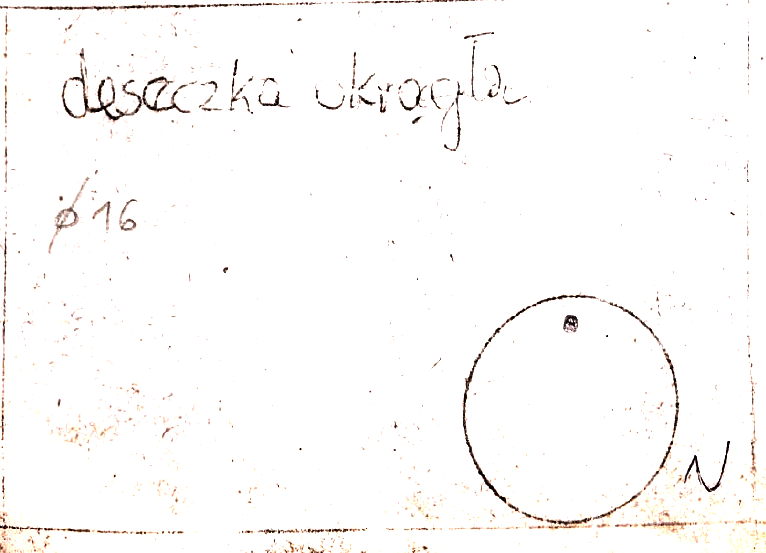 deseczka ukrągła
ø 16
N